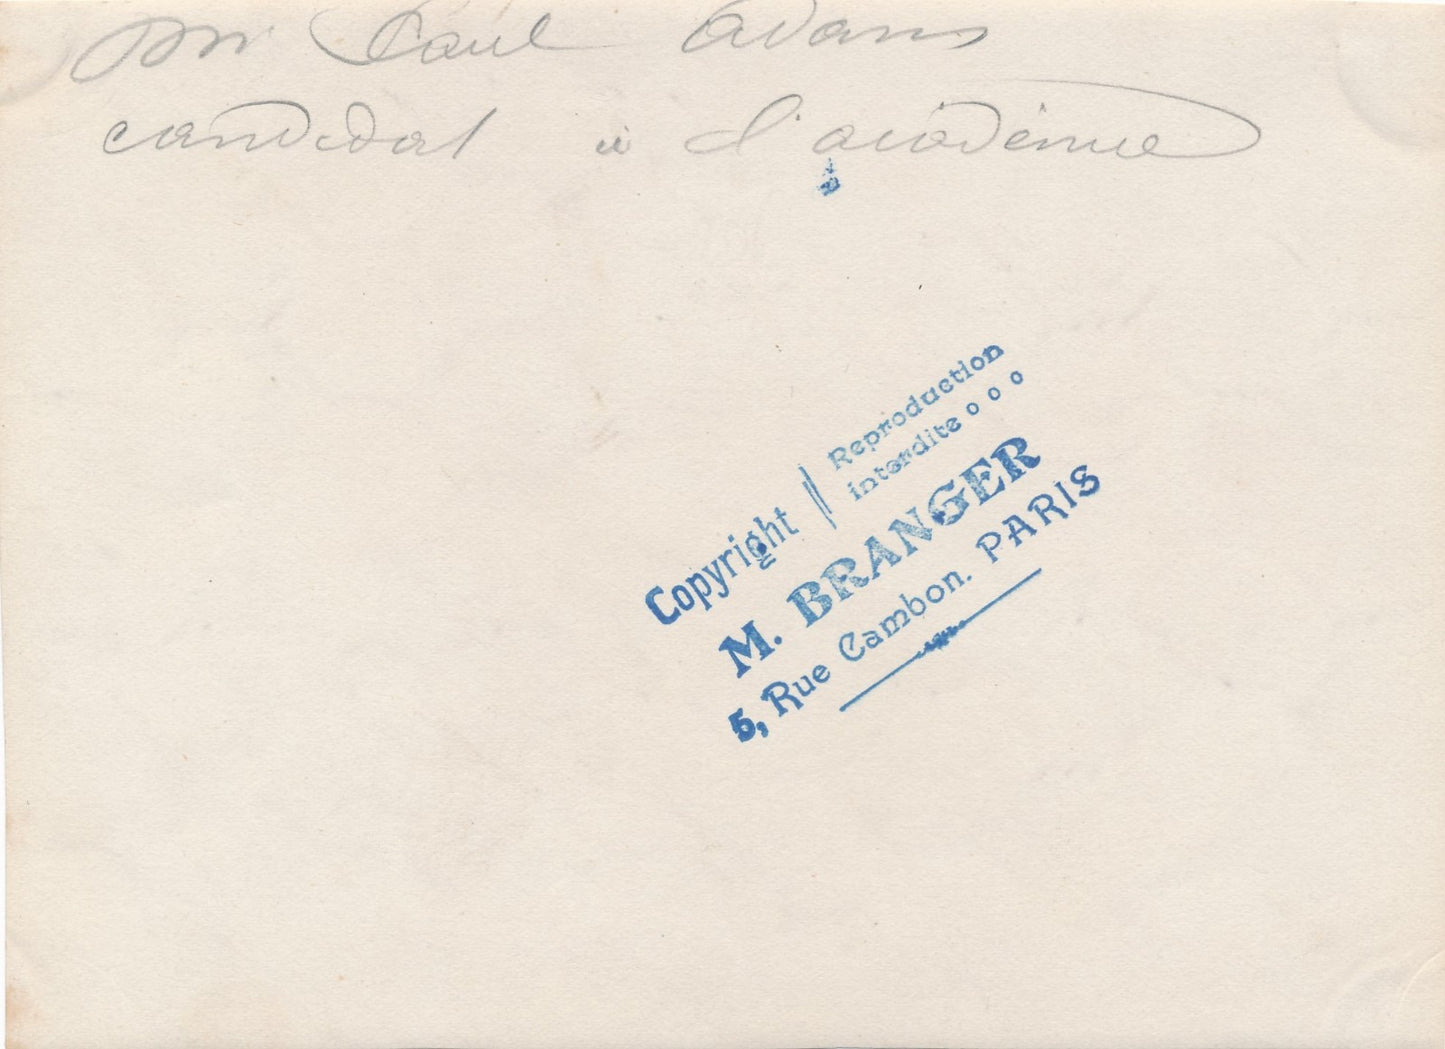 Mr Paul Adam
candidat à l'académie
Copyright
Reproduction
interdite o o o
M. BRANGER
5, Rue Cambon. PARIS